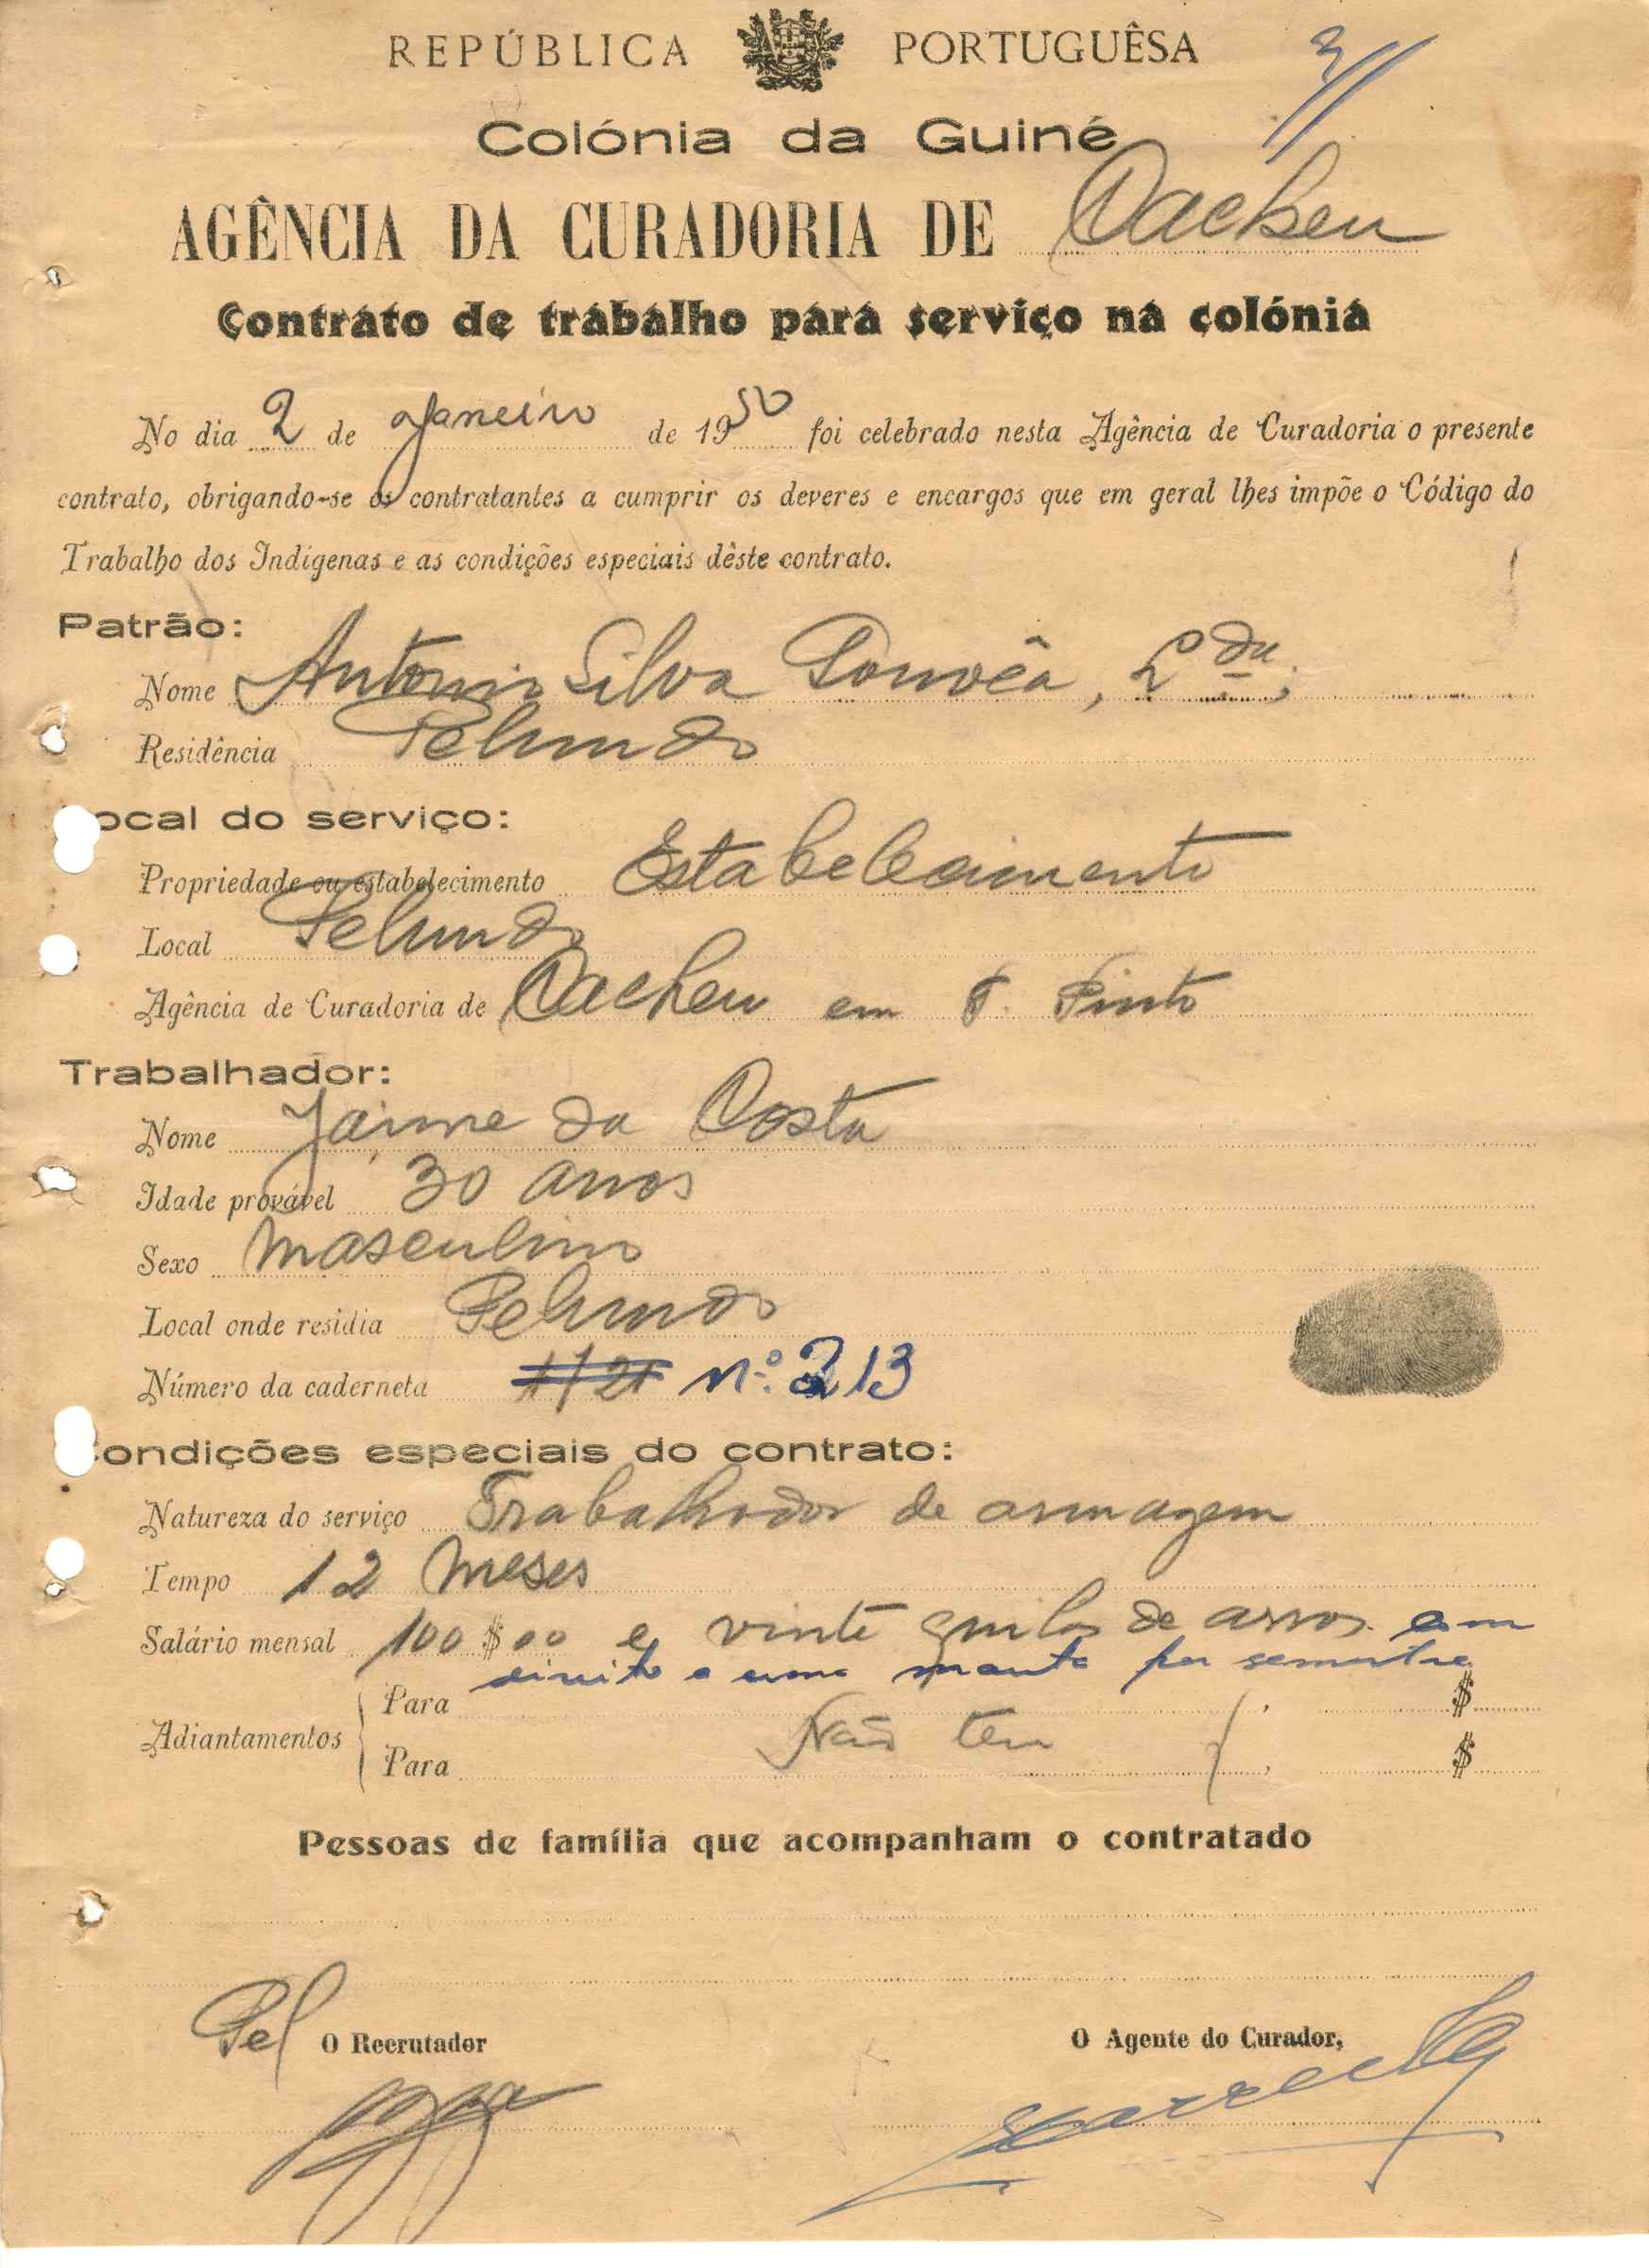 REPÚBLICA PORTUGUÊSA
3
Colónia da Guiné
AGÊNCIA DA CURADORIA DE Cacheu
Contrato de trabalho para serviço na colónia
No dia 2 de Janeiro de 1950 foi celebrado nesta Agência de Curadoria o presente
contrato, obrigando-se os contratantes a cumprir os deveres e encargos que em geral lhes impõe o Código do
Trabalho dos Indígenas e as condições especiais dêste contrato.
Patrão:
Nome Antonio Silva Gouvêa, Lda;
Residência Pelundo
ocal do serviço:
Propriedade ou estabelecimento Estabelecimento
Local Pelundo
Agência de Curadoria de Cacheu em T. Pinto
Trabalhador:
Nome Jaime da Costa
Idade provável 30 anos
Sexo Masculino
Local onde residia Pelundo
Número da caderneta 1/21 nº. 213
ondições especiais do contrato:
Natureza do serviço Trabalhador de armagem
Tempo 12 Meses
Salário mensal 100$00 e vinte quilos de arroz com
direito a uma manta por semestre
Adiantamentos
Para $
Não tem
Para $
Pessoas de família que acompanham o contratado
Pel O Recrutador
O Agente do Curador,